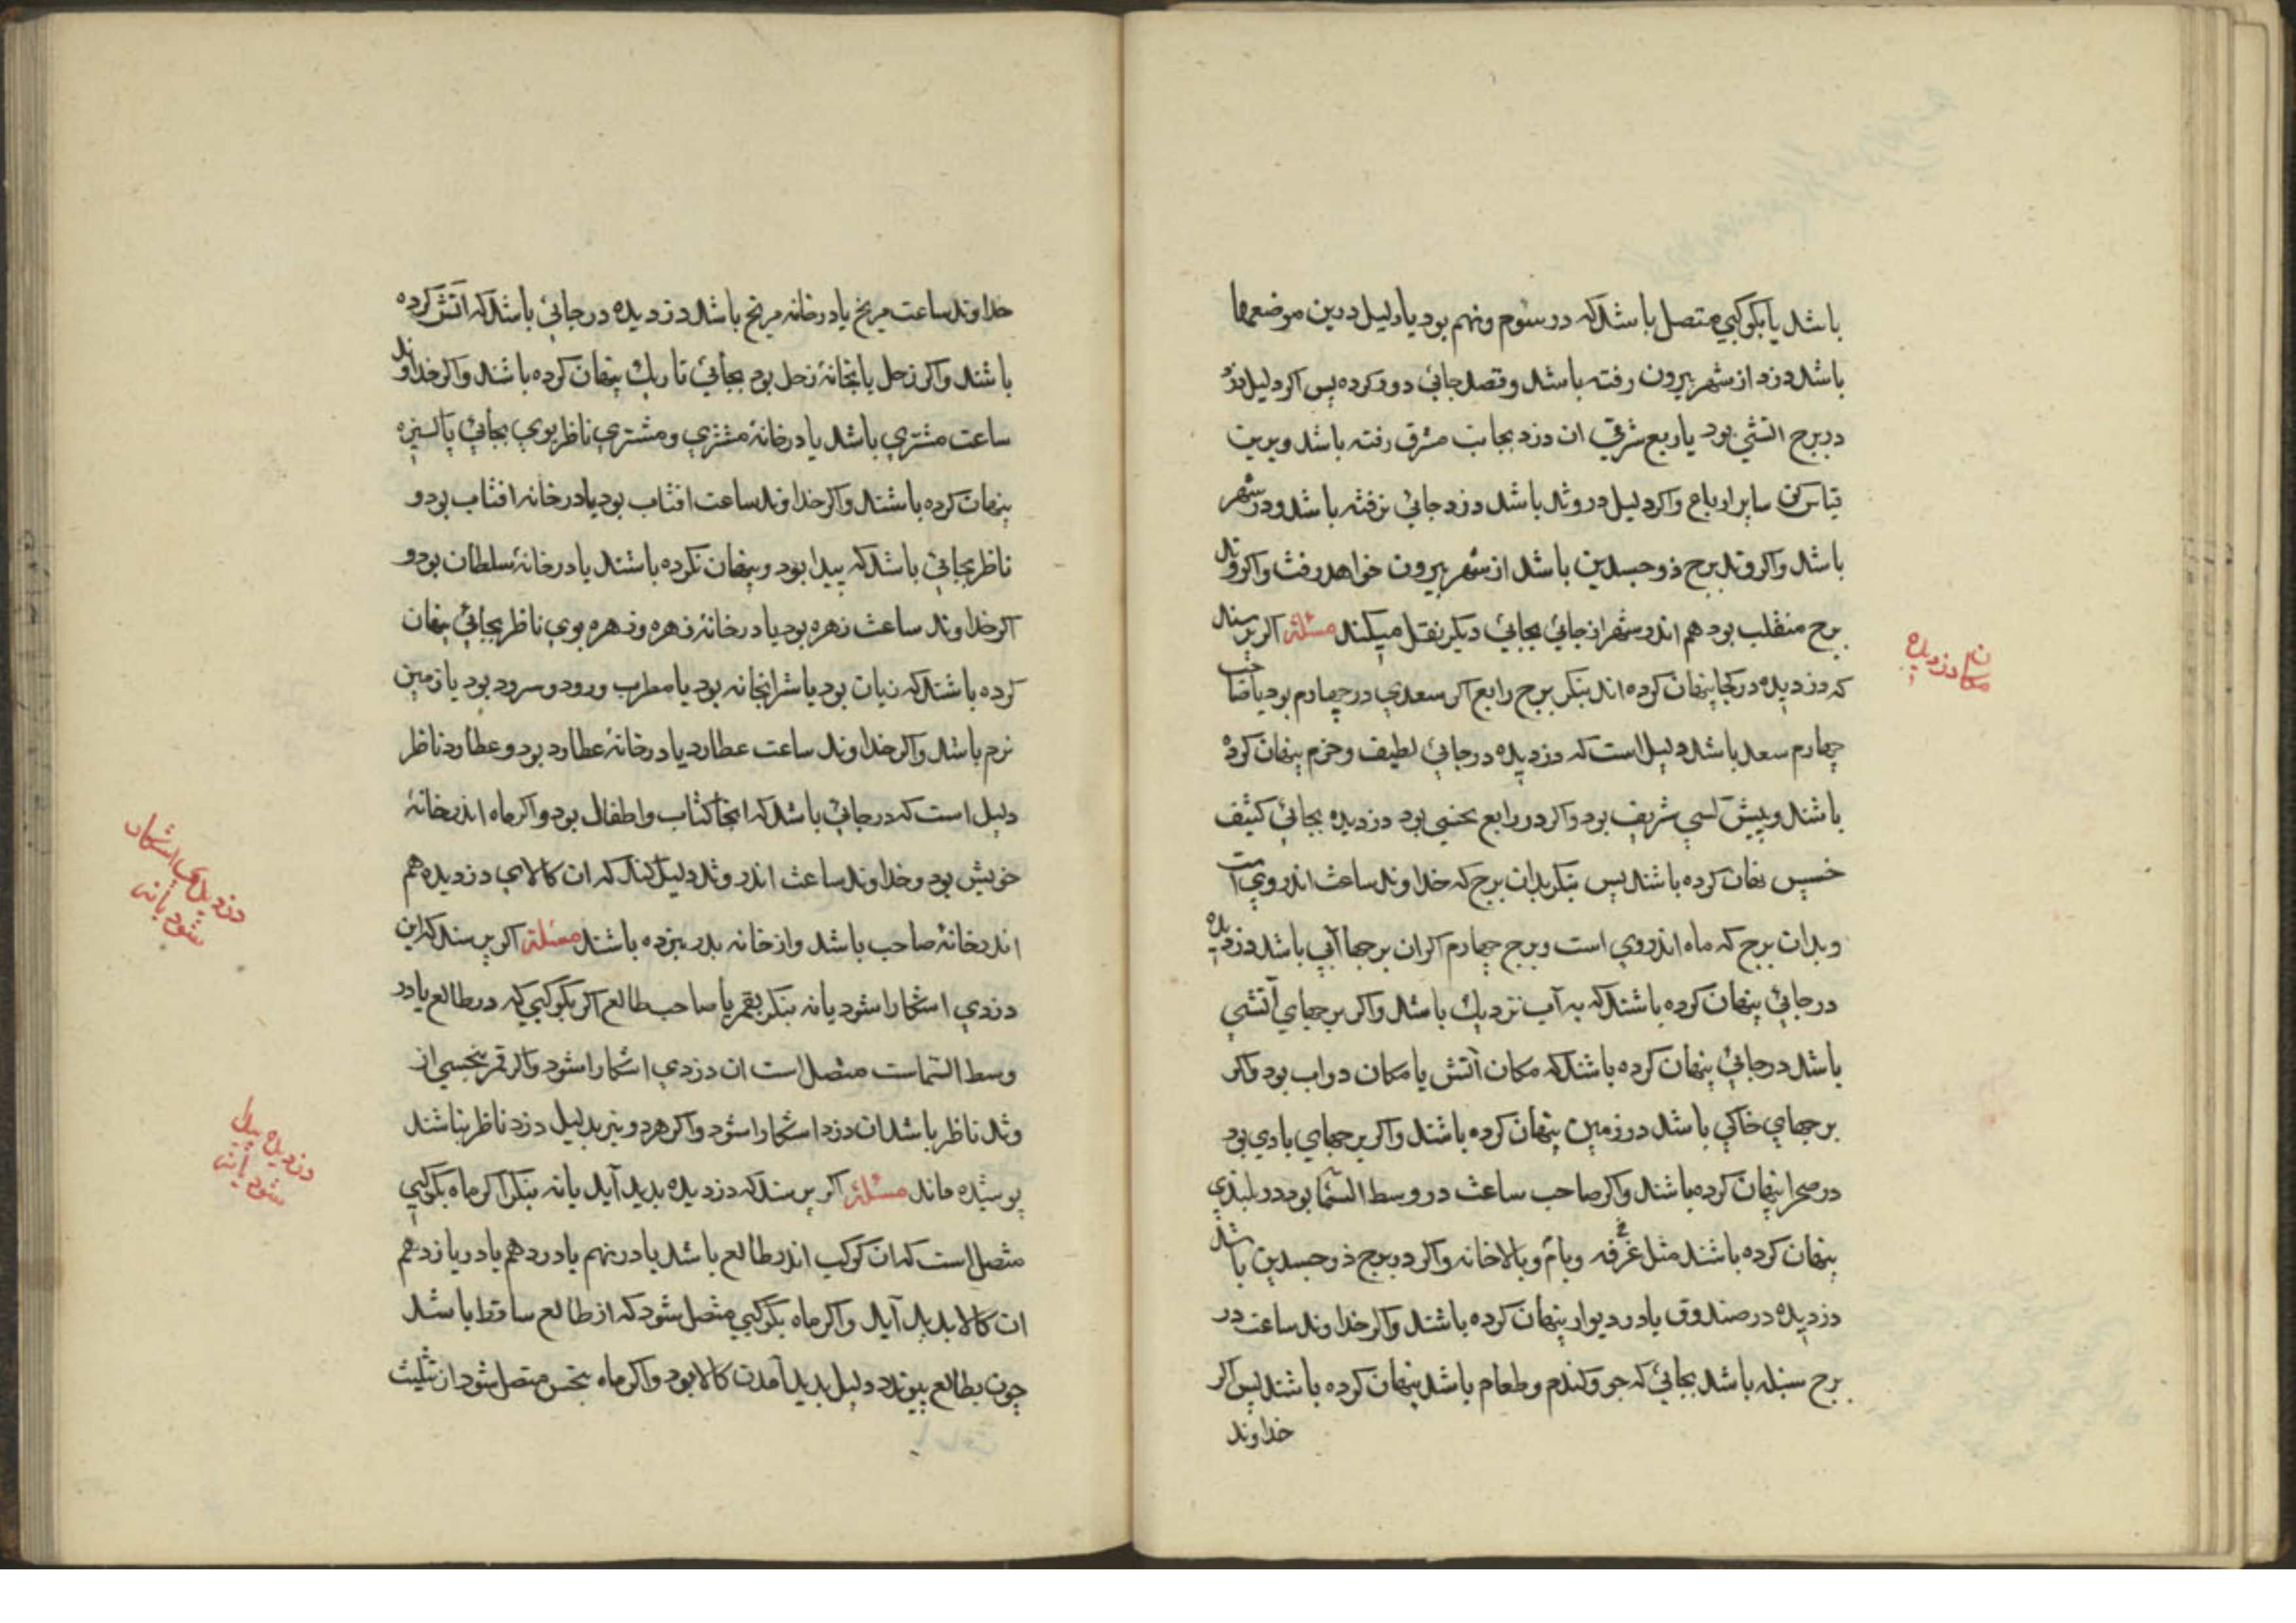 باشد یا بکوکبی متصل باشد که در سوم و نهم بود یا دلیل درین موضعها
باشد دزد از شهر بیرون رفته باشد و قصد جائی دور کرده پس اکر دلیل دزد
در برج اتشی بود یا ربع شرقی ان دزد بجانب مشرق رفته باشد و برین
قیاس کن سایر ارباع واکر دلیل در وتد باشد دزد جائی نرفته باشد و در شهر
باشد واکر وتد برج ذوجسدین باشد از شهر بیرون خواهد رفت واکر وتد
برج منقلب بود هم اندر شهر از جائی بجائی دیکر نقل میکند مسئلة اکر پرسند
که دزدیده در کجا پنهان کرده اند بنکر برج رابع اکر سعدی در چهارم بود یا صاحب
چهارم سعد باشد دلیل است که دزدیده در جائی لطیف و خرم پنهان کرده
باشند و پیش کسی شریف بود واکر در رابع نحسی بود دزدیده بجائی کثیف
خسیس نهان کرده باشند پس بنکر بدان برج که خداوند ساعت اندروی است
وبدان برج که ماه اندروی است و برج چهارم اکر ان برجها آبی باشد دزدیده
در جائی پنهان کرده باشند که به آب نزدیك باشد واکر برجهای آتشی
باشد در جائی پنهان کرده باشند که مکان آتش یا مکان دواب بود واکر
برجهای خاکی باشد در زمین پنهان کرده باشند واکر برجهای بادی بود
در صحرا پنهان کرده باشند واکر صاحب ساعت در وسط السما بود در بلندی
پنهان کرده باشند مثل غرفه و بام و بالاخانه واکر در برج ذوجسدین باشد
دزدیده در صندوق یا در دیوار پنهان کرده باشند واکر خداوند ساعت در
برج سنبله باشد بجائی که جو و کندم و طعام باشد پنهان کرده باشند پس اکر
خداوند
مکان دزدیده
خداوند ساعت مریخ یا در خانه مریخ باشد دزدیده در جائی باشد که آتش کرده
باشند واکر زحل یا بخانۀ زحل بود بجائی تاریك پنهان کرده باشند واکر خداوند
ساعت مشتری باشد یا در خانۀ مشتری و مشتری ناظر بوی بجائی پاکیزه
پنهان کرده باشند واکر خداوند ساعت افتاب بود یا در خانه افتاب بود و
ناظر بجائی باشد که پیدا بود و پنهان نکرده باشند یا در خانۀ سلطان بود و
اکر خداوند ساعت زهره بود یا در خانۀ زهره و زهره بوی ناظر بجائی پنهان
کرده باشند که زنان بود یا شرابخانه بود یا مطرب و رود و سرود بود یا زمین
نرم باشد واکر خداوند ساعت عطارد یا در خانۀ عطارد بود و عطارد ناظر
دلیل است که در جائی باشد که انجا کتاب و اطفال بود و اکر ماه اندر خانۀ
خویش بود و خداوند ساعت اندر وتد دلیل کند که ان کالای دزدیده هم
اندر خانۀ صاحب باشد و از خانه بدر نبرده باشند مسئلة اکر پرسند که این
دزدی اشکارا شود یا نه بنکر بقمر یا صاحب طالع اکر بکوکبی که در طالع یا در
وسط السماست متصل است ان دزدی اشکارا شود واکر قمر بنحسی از
وتد ناظر باشد ان دزد اشکارا شود واکر هر دو نیر بدلیل دزد ناظر نباشند
پوشیده ماند مسئلة اکر پرسند که دزدیده بدید آید یا نه بنکر اکر ماه بکوکبی
متصل است که ان کوکب اندر طالع باشد یا در نهم یا در دهم یا در یازدهم
ان کالا بدید آید واکر ماه بکوکبی متصل شود که از طالع ساقط باشد
چون بطالع پیوندد دلیل بدید آمدن کالا بود واکر ماه بنحس متصل شود از تثلیث
دزدی اشکار
شود یا نه
دزدیده پیدا
شود یا نه